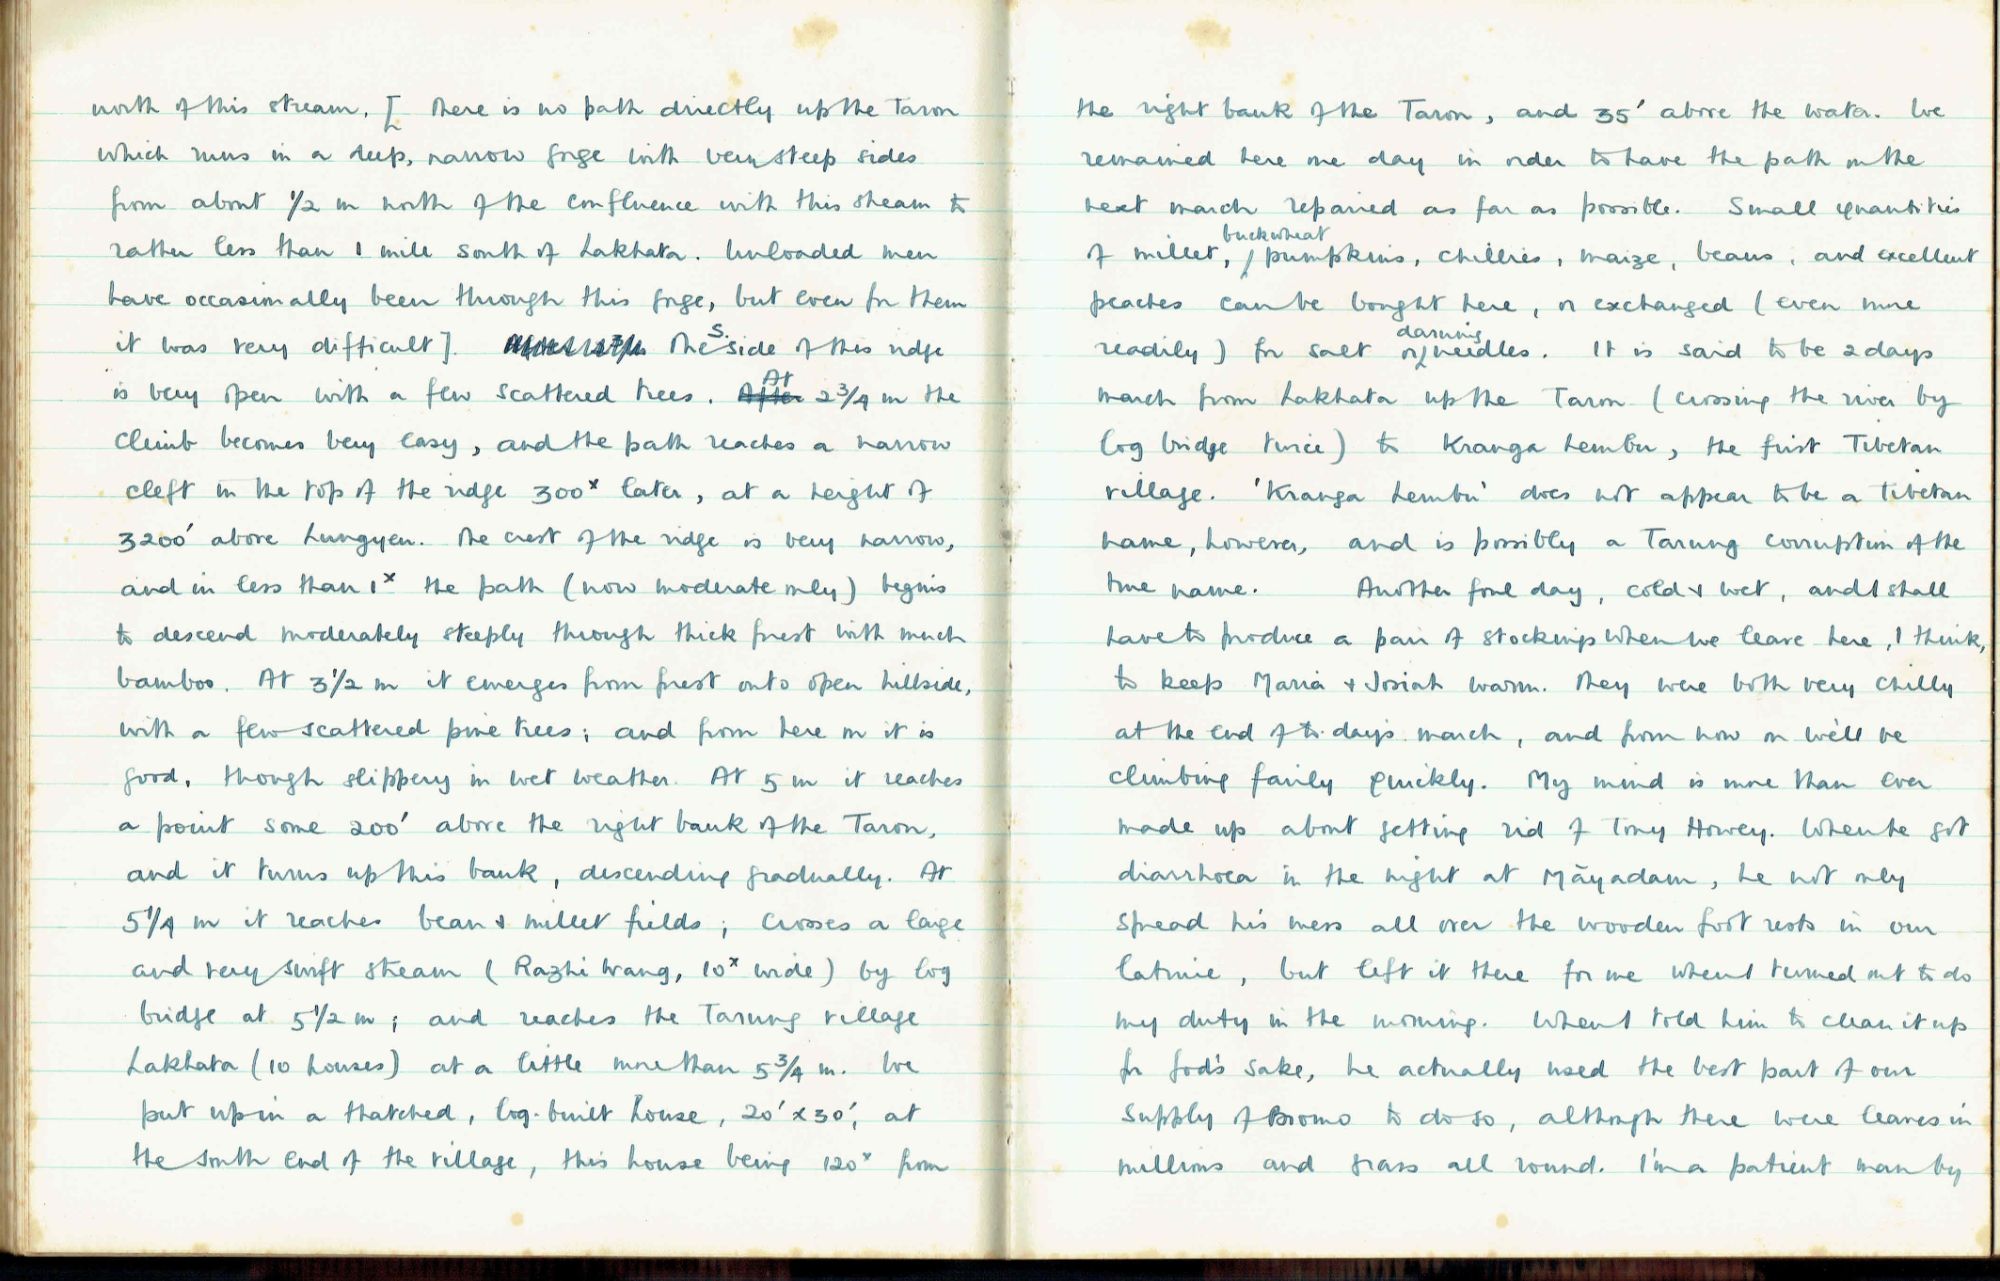 north of this stream. [ There is no path directly up the Taron
which runs in a deep, narrow gorge with very steep sides
from about 1/2 m north of the confluence with this stream to
rather less than 1 mile south of Lakhata. Unloaded men
have occasionally been through this gorge, but even for them
it was very difficult]. The S. side of this ridge
is very open with a few scattered trees. After At 2 3/4 m the
climb becomes very easy, and the path reaches a narrow
cleft in the top of the ridge 300ˣ later, at a height of
3200' above Lungyen. The crest of the ridge is very narrow,
and in less than 1ˣ the path (now moderate only) begins
to descend moderately steeply through thick forest with much
bamboo. At 3 1/2 m it emerges from forest onto open hillside,
with a few scattered pine trees; and from here on it is
good, though slippery in wet weather. At 5 m it reaches
a point some 200' above the right bank of the Taron,
and it turns up this bank, descending gradually. At
5 1/4 m it reaches bean & millet fields; crosses a large
and very swift stream (Razhi Wang, 10ˣ wide) by log
bridge at 5 1/2 m; and reaches the Tarung village
Lakhata (10 houses) at a little more than 5 3/4 m. We
put up in a thatched, log-built house, 20' x 30', at
the south end of the village, this house being 120ˣ from
the right bank of the Taron, and 35' above the water. We
remained here one day in order to have the path on the
next march repaired as far as possible. Small quantities
of millet, buckwheat pumpkins, chillies, maize, beans, and excellent
peaches can be bought here, or exchanged (even more
readily) for salt or darning needles. It is said to be 2 days
march from Lakhata up the Taron (crossing the river by
log bridge twice) to Kranga Lembu, the first Tibetan
village. 'Kranga Lembu' does not appear to be a Tibetan
name, however, and is possibly a Tarung corruption of the
true name. Another foul day, cold & wet, and I shall
have to produce a pair of stockings when we leave here, I think,
to keep Maria & Josiah warm. They were both very chilly
at the end of to-day's march, and from now on we'll be
climbing fairly quickly. My mind is more than ever
made up about getting rid of Tony Howey. When he got
diarrhoea in the night at Māyadam, he not only
spread his mess all over the wooden foot rests in our
latrine, but left it there for me when I turned out to do
my duty in the morning. When I told him to clean it up
for God's sake, he actually used the best part of our
supply of Bromo to do so, although there were leaves in
millions and grass all round. I'm a patient man by